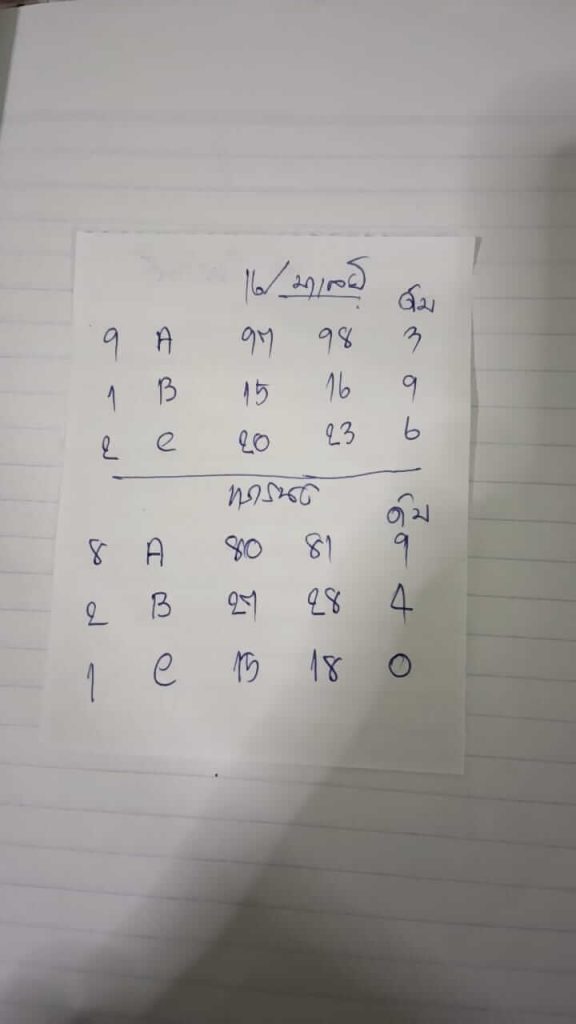 16/ มาเลย์
ดับ
9 A 97 98 3
1 B 15 16 9
2 C 20 23 6
ดับ
8 A 80 81 9
2 B 27 28 4
1 C 15 18 0